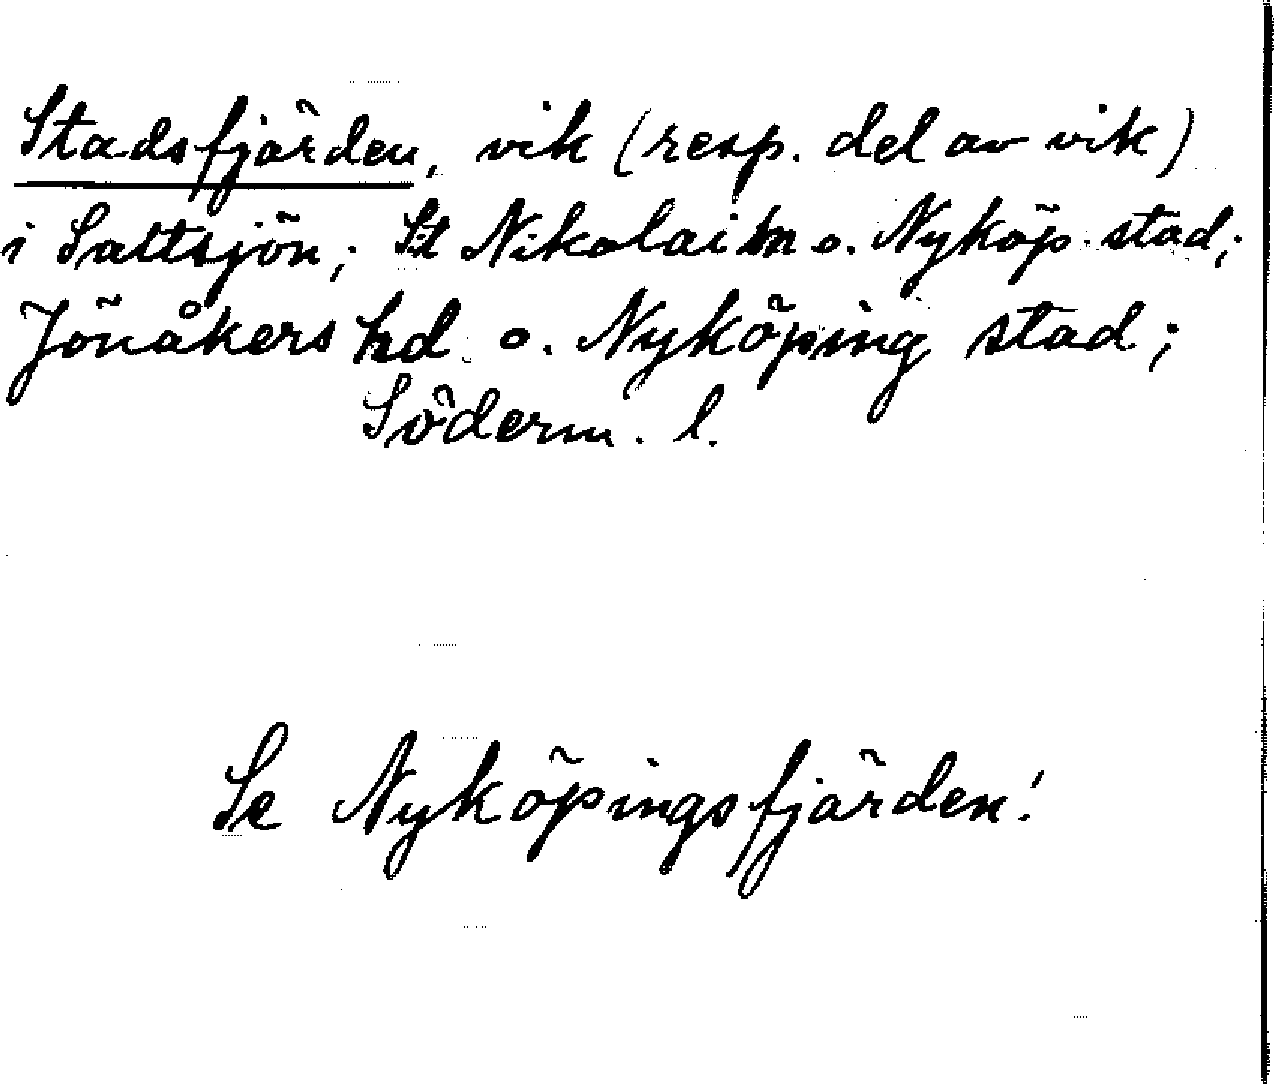 Stadsfjärden, vik (resp. del av vik)
i Saltsjön; St Nikolai ln o. Nyköp. stad;
Jönåkers hd o. Nyköping stad;
Söderm. l.
Se Nyköpingsfjärden!